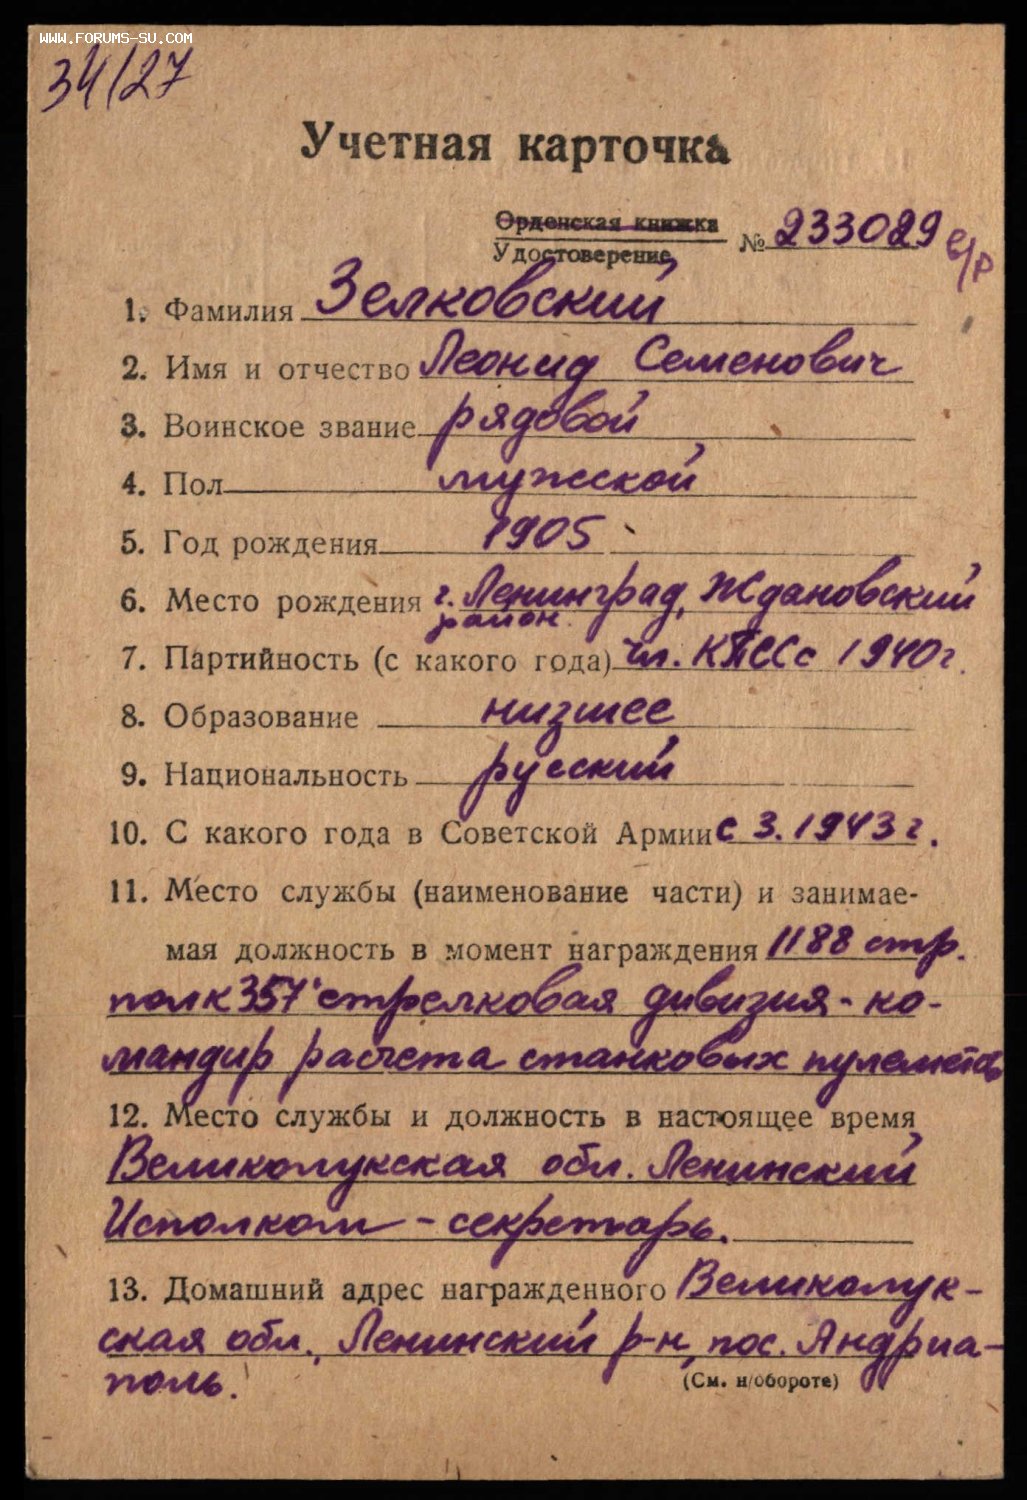 WWW.FORUMS-SU.COM
34/27
Учетная карточка
Орденская книжка
Удостоверение № 233029 б/р
1. Фамилия Зелковский
2. Имя и отчество Леонид Семенович
3. Воинское звание рядовой
4. Пол мужской
5. Год рождения 1905
6. Место рождения г. Ленинград, Ждановский
район.
7. Партийность (с какого года) чл. КПСС с 1940г.
8. Образование низшее
9. Национальность русский
10. С какого года в Советской Армии с 3.1943г.
11. Место службы (наименование части) и занимае-
мая должность в момент награждения 1188 стр.
полк 357 стрелковая дивизия - ко-
мандир расчета станковых пулеметов
12. Место службы и должность в настоящее время
Великолукская обл. Ленинский
Исполком - секретарь.
13. Домашний адрес награжденного Великолук-
ская обл., Ленинский р-н, пос. Андриа-
поль.
(См. н/обороте)